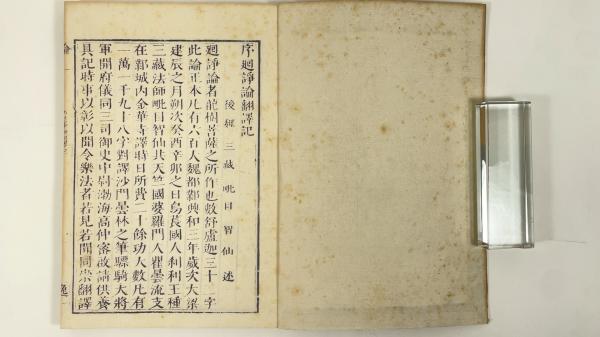 序廻諍論翻譯記
後魏三藏毗目智仙述
廻諍論者龍樹菩薩之所作也數舒盧迦三十二字
此論正本凡有六百大魏都鄴興和三年歲次大梁
建辰之月朔次癸酉辛卯之日烏萇國人刹利王種
三藏法師毗目智仙共天竺國婆羅門人瞿曇流支
在鄴城內金華寺譯時日所費二十餘功大數凡有
一萬一千九十八字對譯沙門曇林之筆驃騎大將
軍開府儀同三司御史中尉渤海高仲密啟請供養
且記時事以彰以聞令樂法者若見若聞同崇翻譯